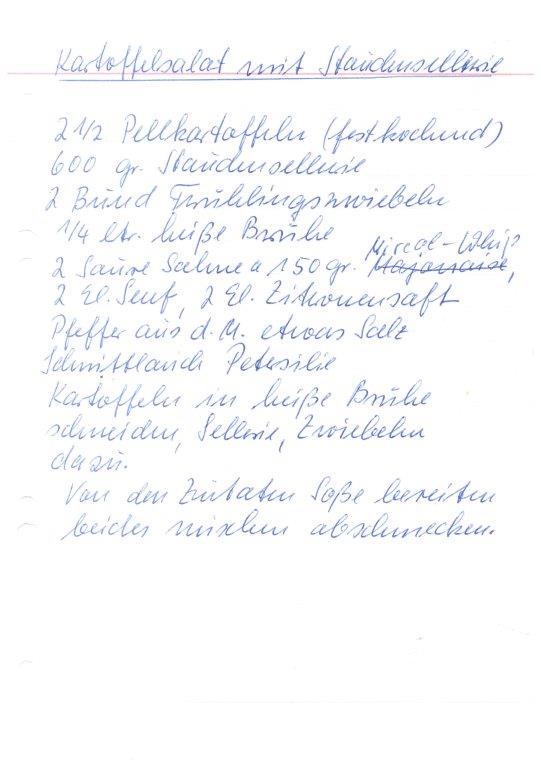 Kartoffelsalat mit Staudensellerie
2 1/2 Pellkartoffeln (festkochend)
600 gr. Staudensellerie
2 Bund Frühlingszwiebeln
1/4 ltr. heiße Brühe
Mircel-Whip
2 Saure Sahne a 150 gr. Majonaise,
2 El. Senf, 2 El. Zitronensaft
Pfeffer aus d. M. etwas Salz
Schnittlauch Petersilie
Kartoffeln in heiße Brühe
schneiden, Sellerie, Zwiebeln
dazu.
Von den Zutaten Soße bereiten
beides mischen abschmecken.